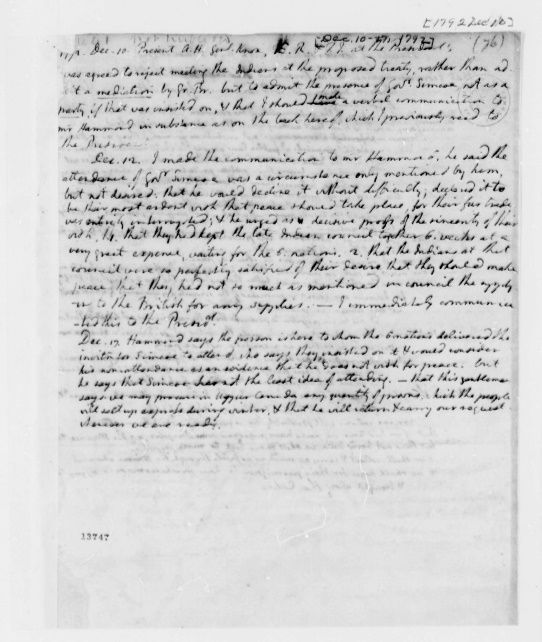 [1792 Dec 10]
[Dec. 10-17. 1792]
(76)
1792. Dec. 10. Present A.H. Genl. Knox, E.R. & T.J. at the President's.
was agreed to reject meeting the Indians at the proposed treaty, rather than ad-
-mit a mediation by Gr. Br. but to admit the presence of Govr. Simcoe, not as a
party, if that was insisted on, & that I should make a verbal communication to
mr Hammond in substance as on the back hereof, which I previously read to
the Presidt.
Dec. 12. I made the communication to mr Hammond. he said the
attendance of Govr. Simcoe was a circumstance only mentioned by him,
but not desired. that he would decline it without difficulty; declared it to
be their most ardent wish that peace should take place, for their fur trade
was entirely interrupted; & he urged as decisive proofs of the sincerity of their
wish, 1st. that they had kept the late Indian council together 6. weeks at a
very great expence, waiting for the 6. nations. 2. that the Indians at that
council were so perfectly satisfied of their desire that they should make
peace, that they had not so much as mentioned in council the apply-
ing to the British for any supplies. — I immediately communica-
-ted this to the Presidt.
Dec. 17. Hammond says the person is here to whom the 6. nations delivered the
invitn for Simcoe to attend, who says they insisted on it & would consider
his non-attendance as an evidence that he does not wish for peace. but
he says that Simcoe has not the least idea of attending. — that this gentleman
says we may procure in Upper Canada any quantity of provns, which the people
will salt up express during winter, & that he will return & carry our request
whenever we are ready.
13747